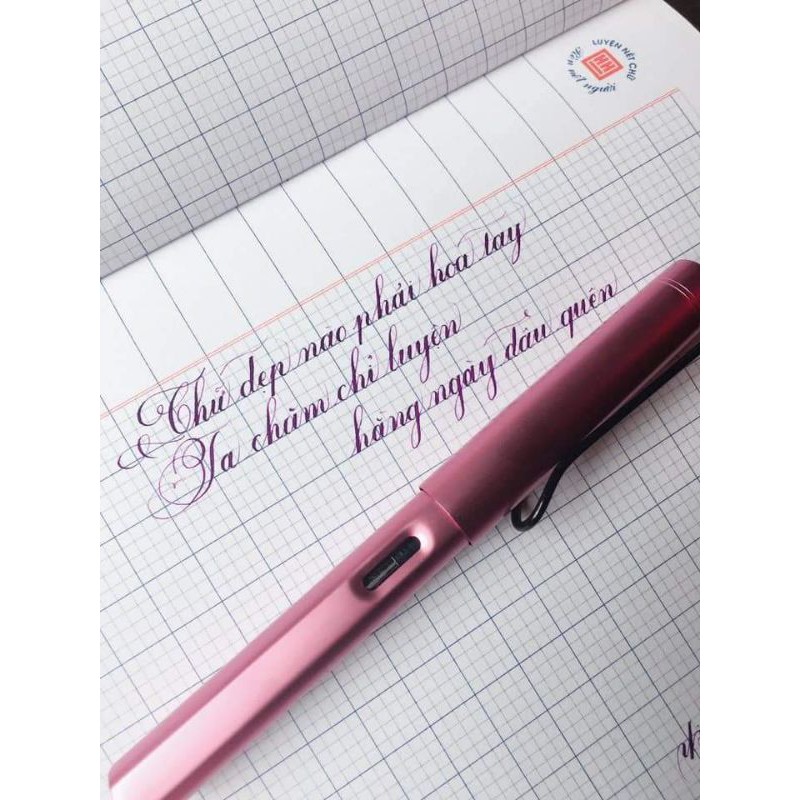 LUYỆN NÉT CHỮ
Rèn nét người
Chữ đẹp nào phải hoa tay
Ta chăm chỉ luyện
hằng ngày đấy quên